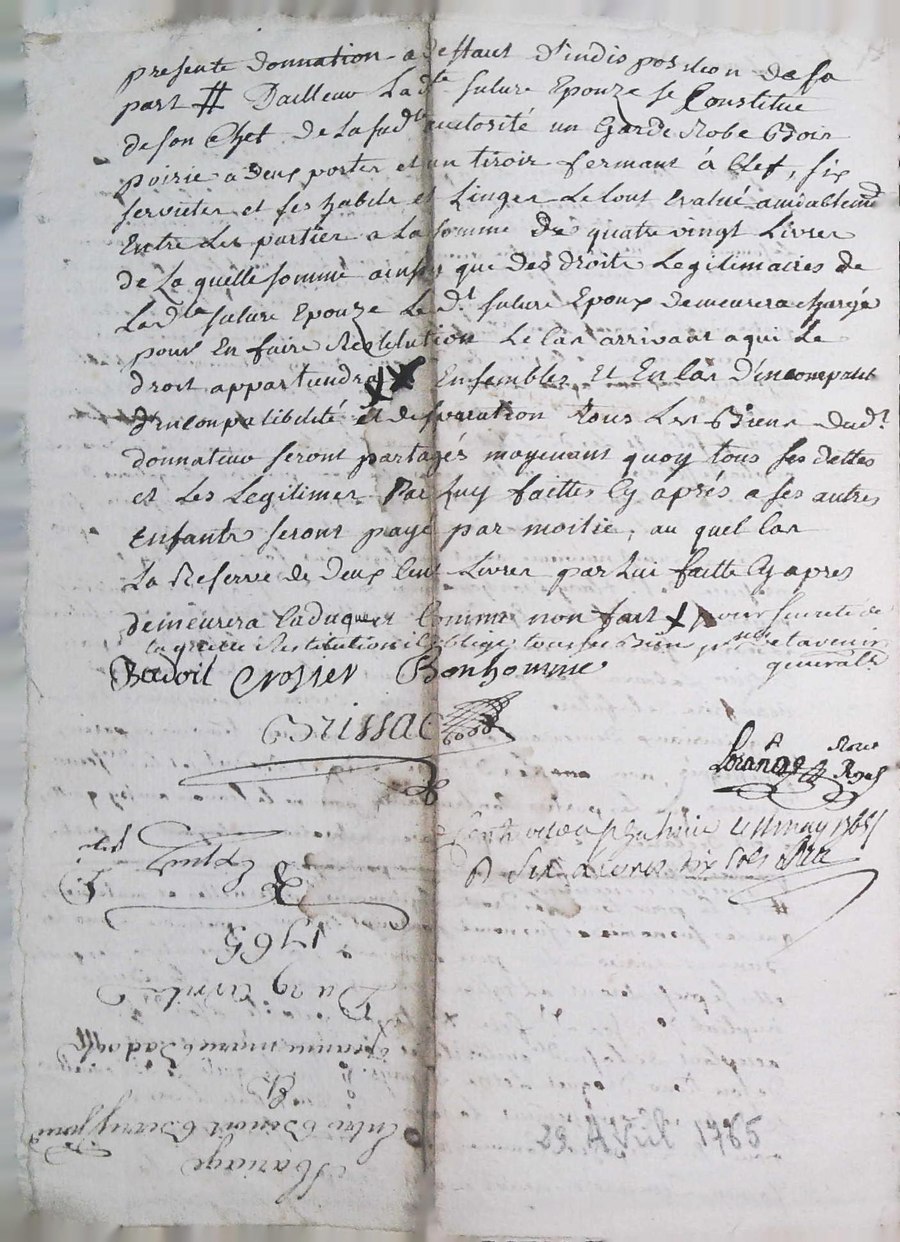 presente donnation a deffaut d'indisposition de sa
part # Dailleur Lad.te future Epouze se Constitue
de son Chef de La sud.te autorité un Garde Robe Bois
poirie a deux portes et un tiroir fermant à Clef, six
serviettes et ses habits et Linges Le tout Evalué amiablem.t
Entre Les parties a La somme de quatre vingt Livres
de La quelle somme ainsy que des droits Legitimaires de
Lad.te future Epouze Le d.t futur Epoux demeurera chargé
pour En faire Restitution le Cas arrivant a qui de
droit appartiendra Ensembles Et En Cas D'incompatib
D'incompatibilité et de separation tous Les Biens dud.t
donnateur seront partagés moyenant quoy tous ses dettes
et Les Legitimes Par Luy faittes Cy aprés a ses autres
Enfants seront payé par moitie, au quel Cas
La Reserve de Deux Cent Livres par Lui faitte Cy apres
demeurera Caduque Comme non fait X pour sureté de
la Restitution il oblige tous ses Biens et avenir
generalt
Badoil Crozier Bonhomme
Brissac
Not.re
Royal
may 1765
six Livres dix sols
Mariage
Entre Benoit
Et
Du 29 avril
1765
Exp.
29 Avril 1765